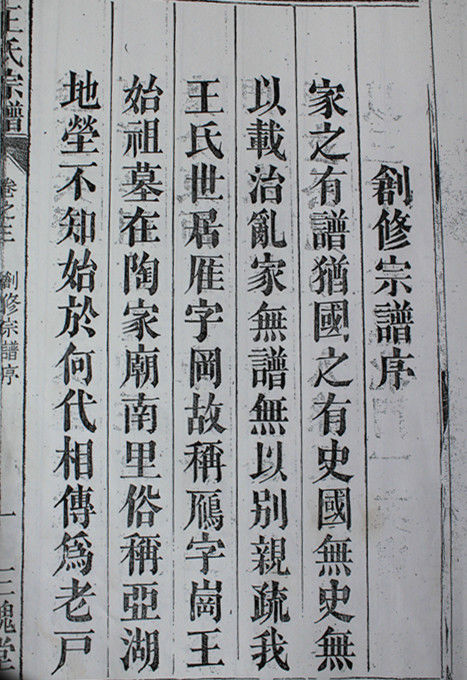 創修宗譜序
家之有譜猶國之有史國無史無
以載治亂家無譜無以別親疏我
王氏世居雁字岡故稱鴈字崗王
始祖墓在陶家廟南里俗稱亞湖
地塋不知始於何代相傳爲老戸
王氏宗譜
卷之三
創修宗譜序
一
三槐堂